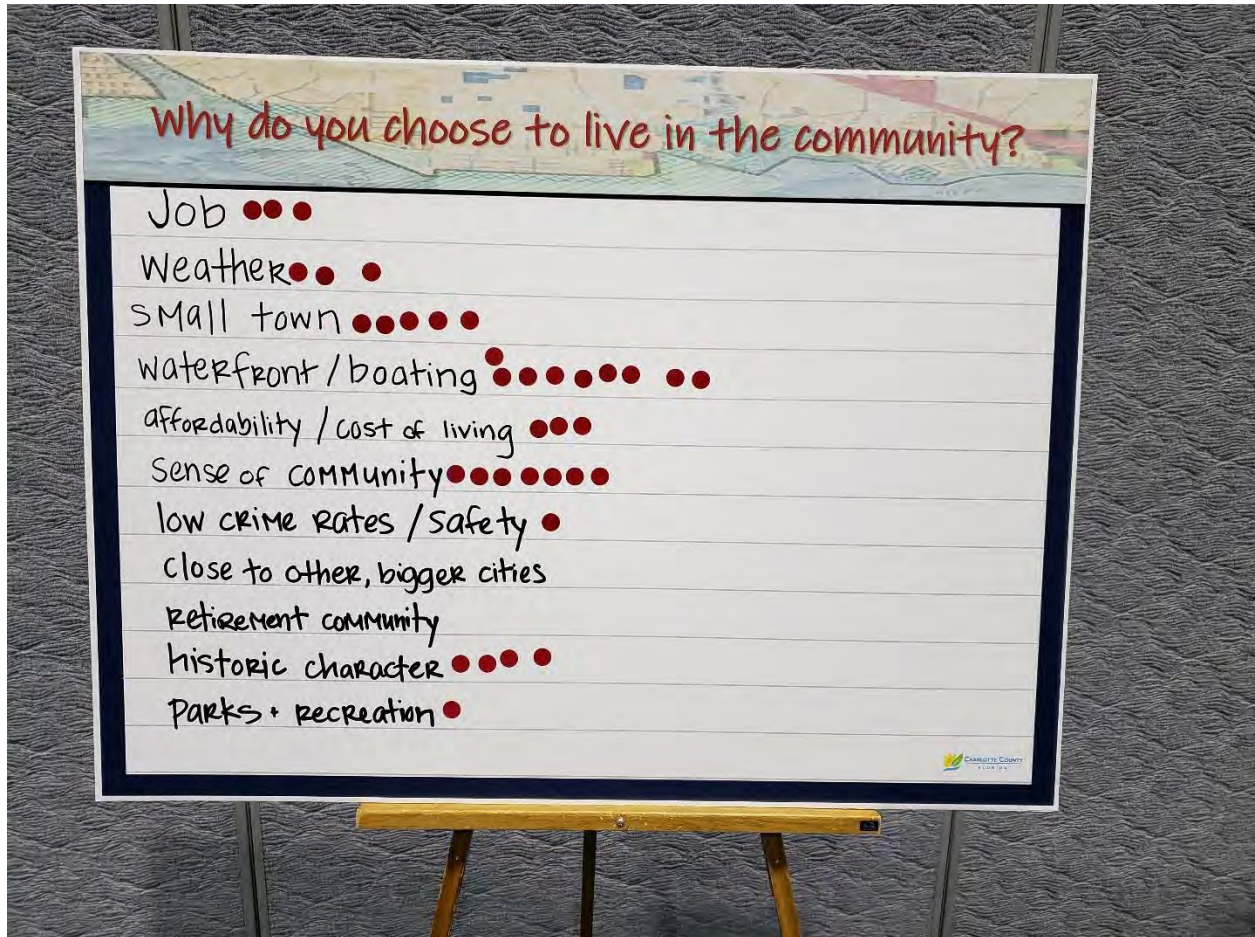 Why do you choose to live in the community?
Job
Weather
small town
waterfront / boating
affordability / cost of living
sense of community
low crime rates / safety
close to other, bigger cities
retirement community
historic character
parks + recreation
CHARLOTTE COUNTY
FLORIDA